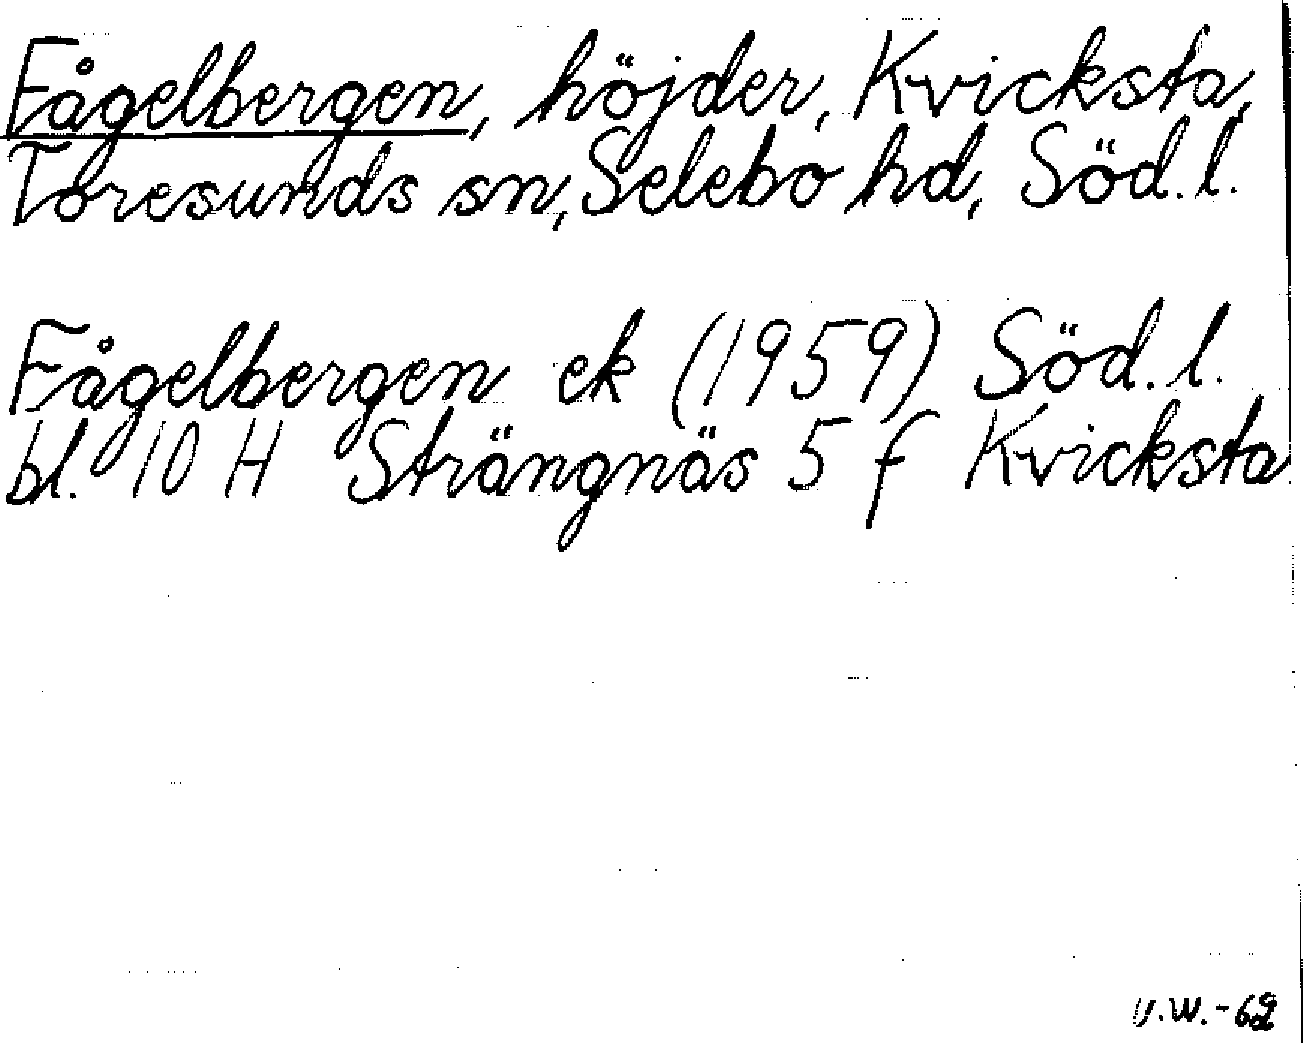 Fågelbergen, höjder, Kvicksta,
Toresunds sn, Selebo hd, Söd. l.
Fågelbergen ek (1959) Söd. l.
bl. 10 H Strängnäs 5 f Kvicksta
U.W.-62